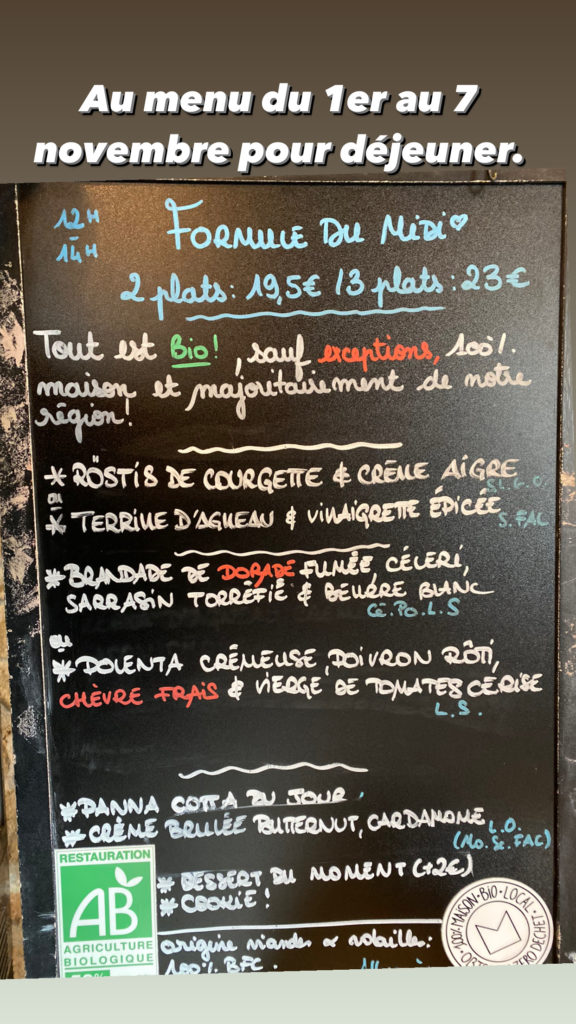 Au menu du 1er au 7
novembre pour déjeuner.
12H
-
14H
FORMULE DU MIDI
2 plats : 19,5€ / 3 plats : 23€
Tout est Bio! , sauf exceptions, 100%
maison et majoritairement de notre
région!
* RÖSTIS DE COURGETTE & CRÈME AIGRE
ou
* TERRINE D'AGNEAU & VINAIGRETTE ÉPICÉE
S. FAC
* BRANDADE DE DORADE FUMÉE, CÉLERI,
SARRASIN TORRÉFIÉ & BEURRE BLANC
CÉ.PO.L.S
ou
* POLENTA CRÉMEUSE, POIVRON RÔTI,
CHÈVRE FRAIS & VIERGE DE TOMATES CERISE
L.S.
* PANNA COTTA DU JOUR
* CRÈME BRULÉE BUTTERNUT, CARDAMOME
L.O.
(Mo. Sé. FAC)
* DESSERT DU MOMENT (+2€)
* COOKIE !
RESTAURATION
AB
AGRICULTURE
BIOLOGIQUE
origine viandes & volailles:
100% BFC.
100% MAISON • BIO • LOCAL •
ZERO DECHET